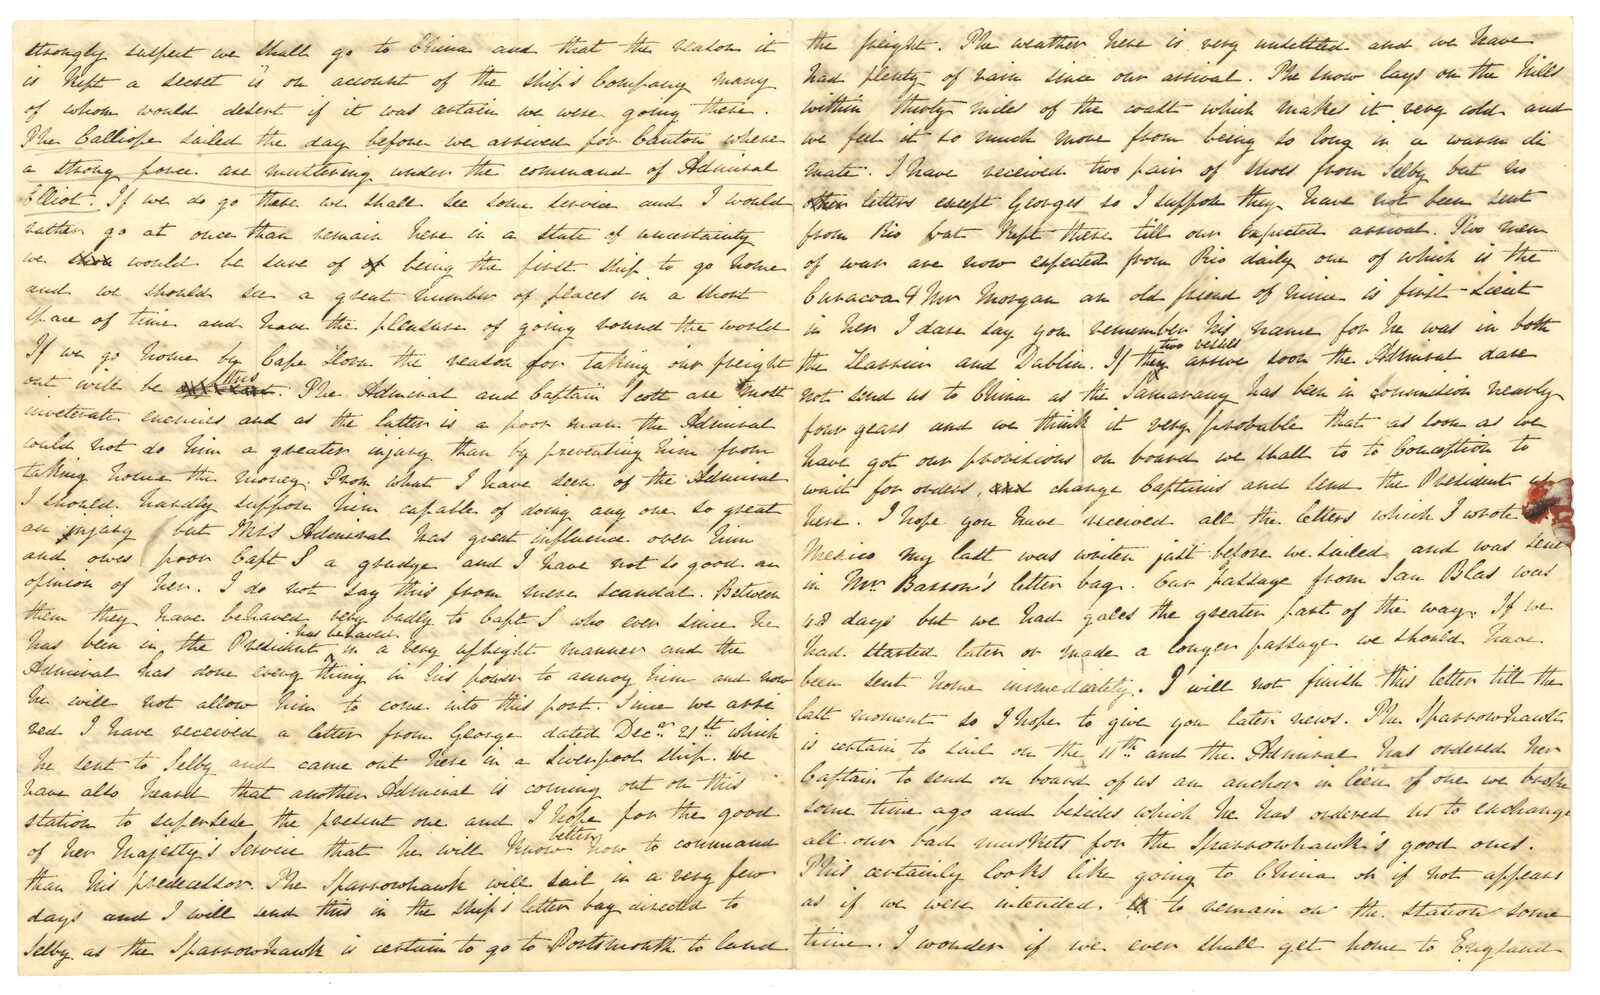 strongly suspect we shall go to China and that the reason it
is kept a secret is on account of the ship's Company many
of whom would desert if it was certain we were going there.
The Calliope sailed the day before we arrived for Canton where
a strong force are mustering under the command of Admiral
Elliot. If we do go there we shall see some service and I would
rather go at once than remain here in a state of uncertainty
we would be sure of of being the first ship to go home
and we should see a great number of places in a short
space of time and have the pleasure of going round the world
If we go home by Cape Horn the reason for taking our freight
out will be this. The Admiral and Captain Scott are most
inveterate enemies and as the latter is a poor man the Admiral
could not do him a greater injury than by preventing him from
taking home the money. From what I have seen of the Admiral
I should hardly suppose him capable of doing any one so great
an injury but Mrs Admiral has great influence over him
and owes poor Capt S a grudge and I have not so good an
opinion of her. I do not say this from mere scandal. Between
them they have behaved very badly to Capt S who ever since he
has been in the President has behaved in a very upright manner and the
Admiral has done every thing in his power to annoy him and now
he will not allow him to come into this port. Since we arri
ved I have received a letter from George dated Decr 21st which
he sent to Selby and came out here in a Liverpool ship. We
have also heard that another Admiral is coming out on this
station to supersede the present one and I hope for the good
of her Majesty's Service that he will know better how to command
than his predecessor. The Sparrowhawk will sail in a very few
days and I will send this in the ship's letter bag directed to
Selby as the Sparrowhawk is certain to go to Portsmouth to land
the freight. The weather here is very unsettled and we have
had plenty of rain since our arrival. The snow lays on the hills
within thirty miles of the coast which makes it very cold and
we feel it so much more from being so long in a warm cli
mate. I have received two pair of shoes from Selby but no
other letters except Georges so I suppose they have not been sent
from Rio but kept there till our expected arrival. Two men
of war are now expected from Rio daily one of which is the
Curacoa & Mr Morgan an old friend of mine is first Lieut
in her I dare say you remember his name for he was in both
the Harrier and Dublin. If they two vessels arrive soon the Admiral dare
not send us to China as the Samarang has been in commission nearly
four years and we think it very probable that as soon as we
have got our provisions on board we shall to to Conception to
wait for orders, and change Captains and send the President up
here. I hope you have received all the letters which I wrote
Mexico my last was writen just before we sailed and was sent
in Mr. Barron's letter bag. Our passage from San Blas was
48 days but we had gales the greater part of the way. If we
had started later or made a longer passage we should have
been sent home immediately. I will not finish this letter till the
last moment so I hope to give you later news. The Sparrowhawk
is certain to sail on the 11th and the Admiral has ordered her
Captain to send on board of us an anchor in lieu of one we broke
some time ago and besides which he has ordered us to exchange
all our bad muskets for the Sparrowhawk's good ones.
This certainly looks like going to China or if not appears
as if we were intended. to remain on the station some
time. I wonder if we ever shall get home to England